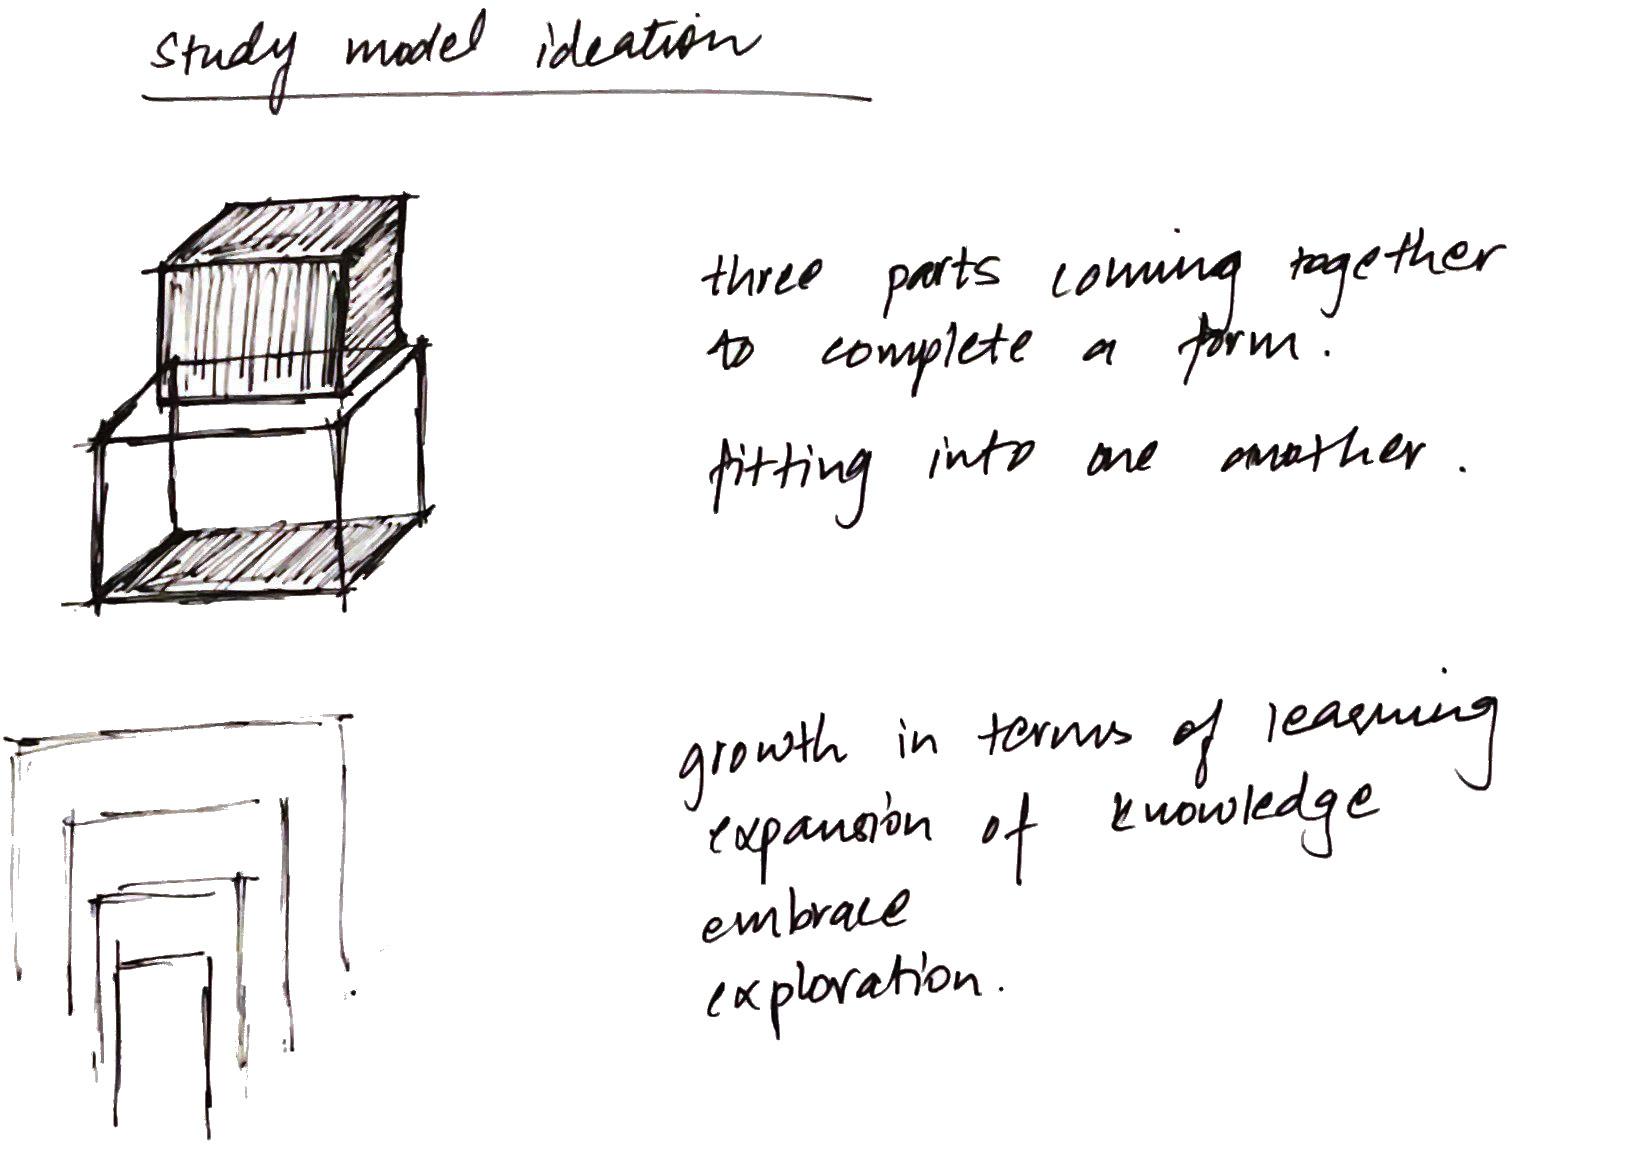 study model ideation
three parts coming together
to complete a form.
fitting into one another.
growth in terms of learning
expansion of knowledge
embrace
exploration.